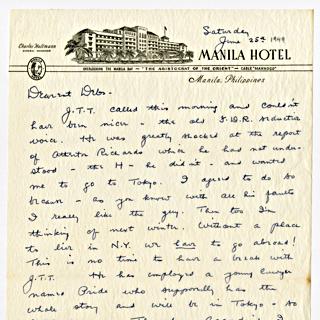 Saturday
June 25th 1949
Charles Huttmann
GENERAL MANAGER
MANILA HOTEL
OVERLOOKING THE MANILA BAY — "THE ARISTOCRAT OF THE ORIENT" — CABLE "MANHOCO"
Manila, Philippines
Dearest Debs-
J.T.T. called this morning and couldn't
have been nicer - the old F.D.R. seductive
voice. He was greatly shocked at the report
of Atherton Richards which he had not under-
stood - the H- he didn't - and wanted
me to go to Tokyo. I agreed to do so
because - as you know with all his faults
I really like the guy. Then too I'm
thinking of next winter. Without a place
to live in N.Y. we have to go abroad!
This is no time to have a break with
J.T.T. He has employed a young lawyer
named Pride who supposedly has the
whole story and will be in Tokyo - so